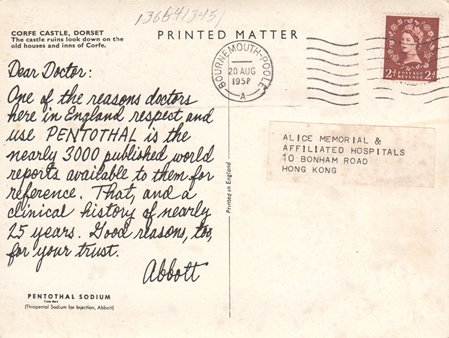 136641345
CORFE CASTLE, DORSET
The castle ruins look down on the
old houses and inns of Corfe.
PRINTED MATTER
Dear Doctor:
One of the reasons doctors
here in England respect and
use PENTOTHAL is the
nearly 3000 published world
reports available to them for
reference. That, and a
clinical history of nearly
25 years. Good reasons, too,
for your trust.
Abbott
PENTOTHAL SODIUM
Trade Mark
(Thiopental Sodium for Injection, Abbott)
Printed in England
BOURNEMOUTH-POOLE
20 AUG
1958
A
2d POSTAGE 2d
REVENUE
ALICE MEMORIAL &
AFFILIATED HOSPITALS
10 BONHAM ROAD
HONG KONG